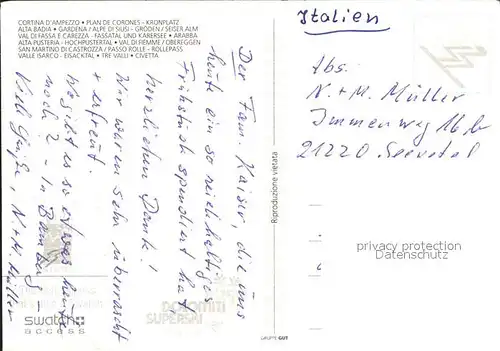 CORTINA D'AMPEZZO • PLAN DE CORONES - KRONPLATZ
ALTA BADIA • GARDENA / ALPE DI SIUSI - GRÖDEN / SEISER ALM
VAL DI FASSA E CAREZZA - FASSATAL UND KARERSEE • ARABBA
ALTA PUSTERIA - HOCHPUSTERTAL • VAL DI FIEMME / OBEREGGEN
SAN MARTINO DI CASTROZZA / PASSO ROLLE - ROLLEPASS
VALLE ISARCO - EISACKTAL • TRE VALLI • CIVETTA
Der Fam. Kaiser, die uns
heute ein so reichhaltiges
Frühstück spendiert hat
herzlichen Dank!
Wir waren sehr überrascht
+ erfreut.
Wo gibt es so etwas heute
noch? - In Bamberg -
Viele Grüße, N + M. Müller
swatch
access
DOLOMITI
SUPERSKI
Riproduzione vietata
GRUPPE GUT
Italien
Abs:
N. + M. Müller
Immenweg 16b
21220 Seevetal
privacy protection
Datenschutz